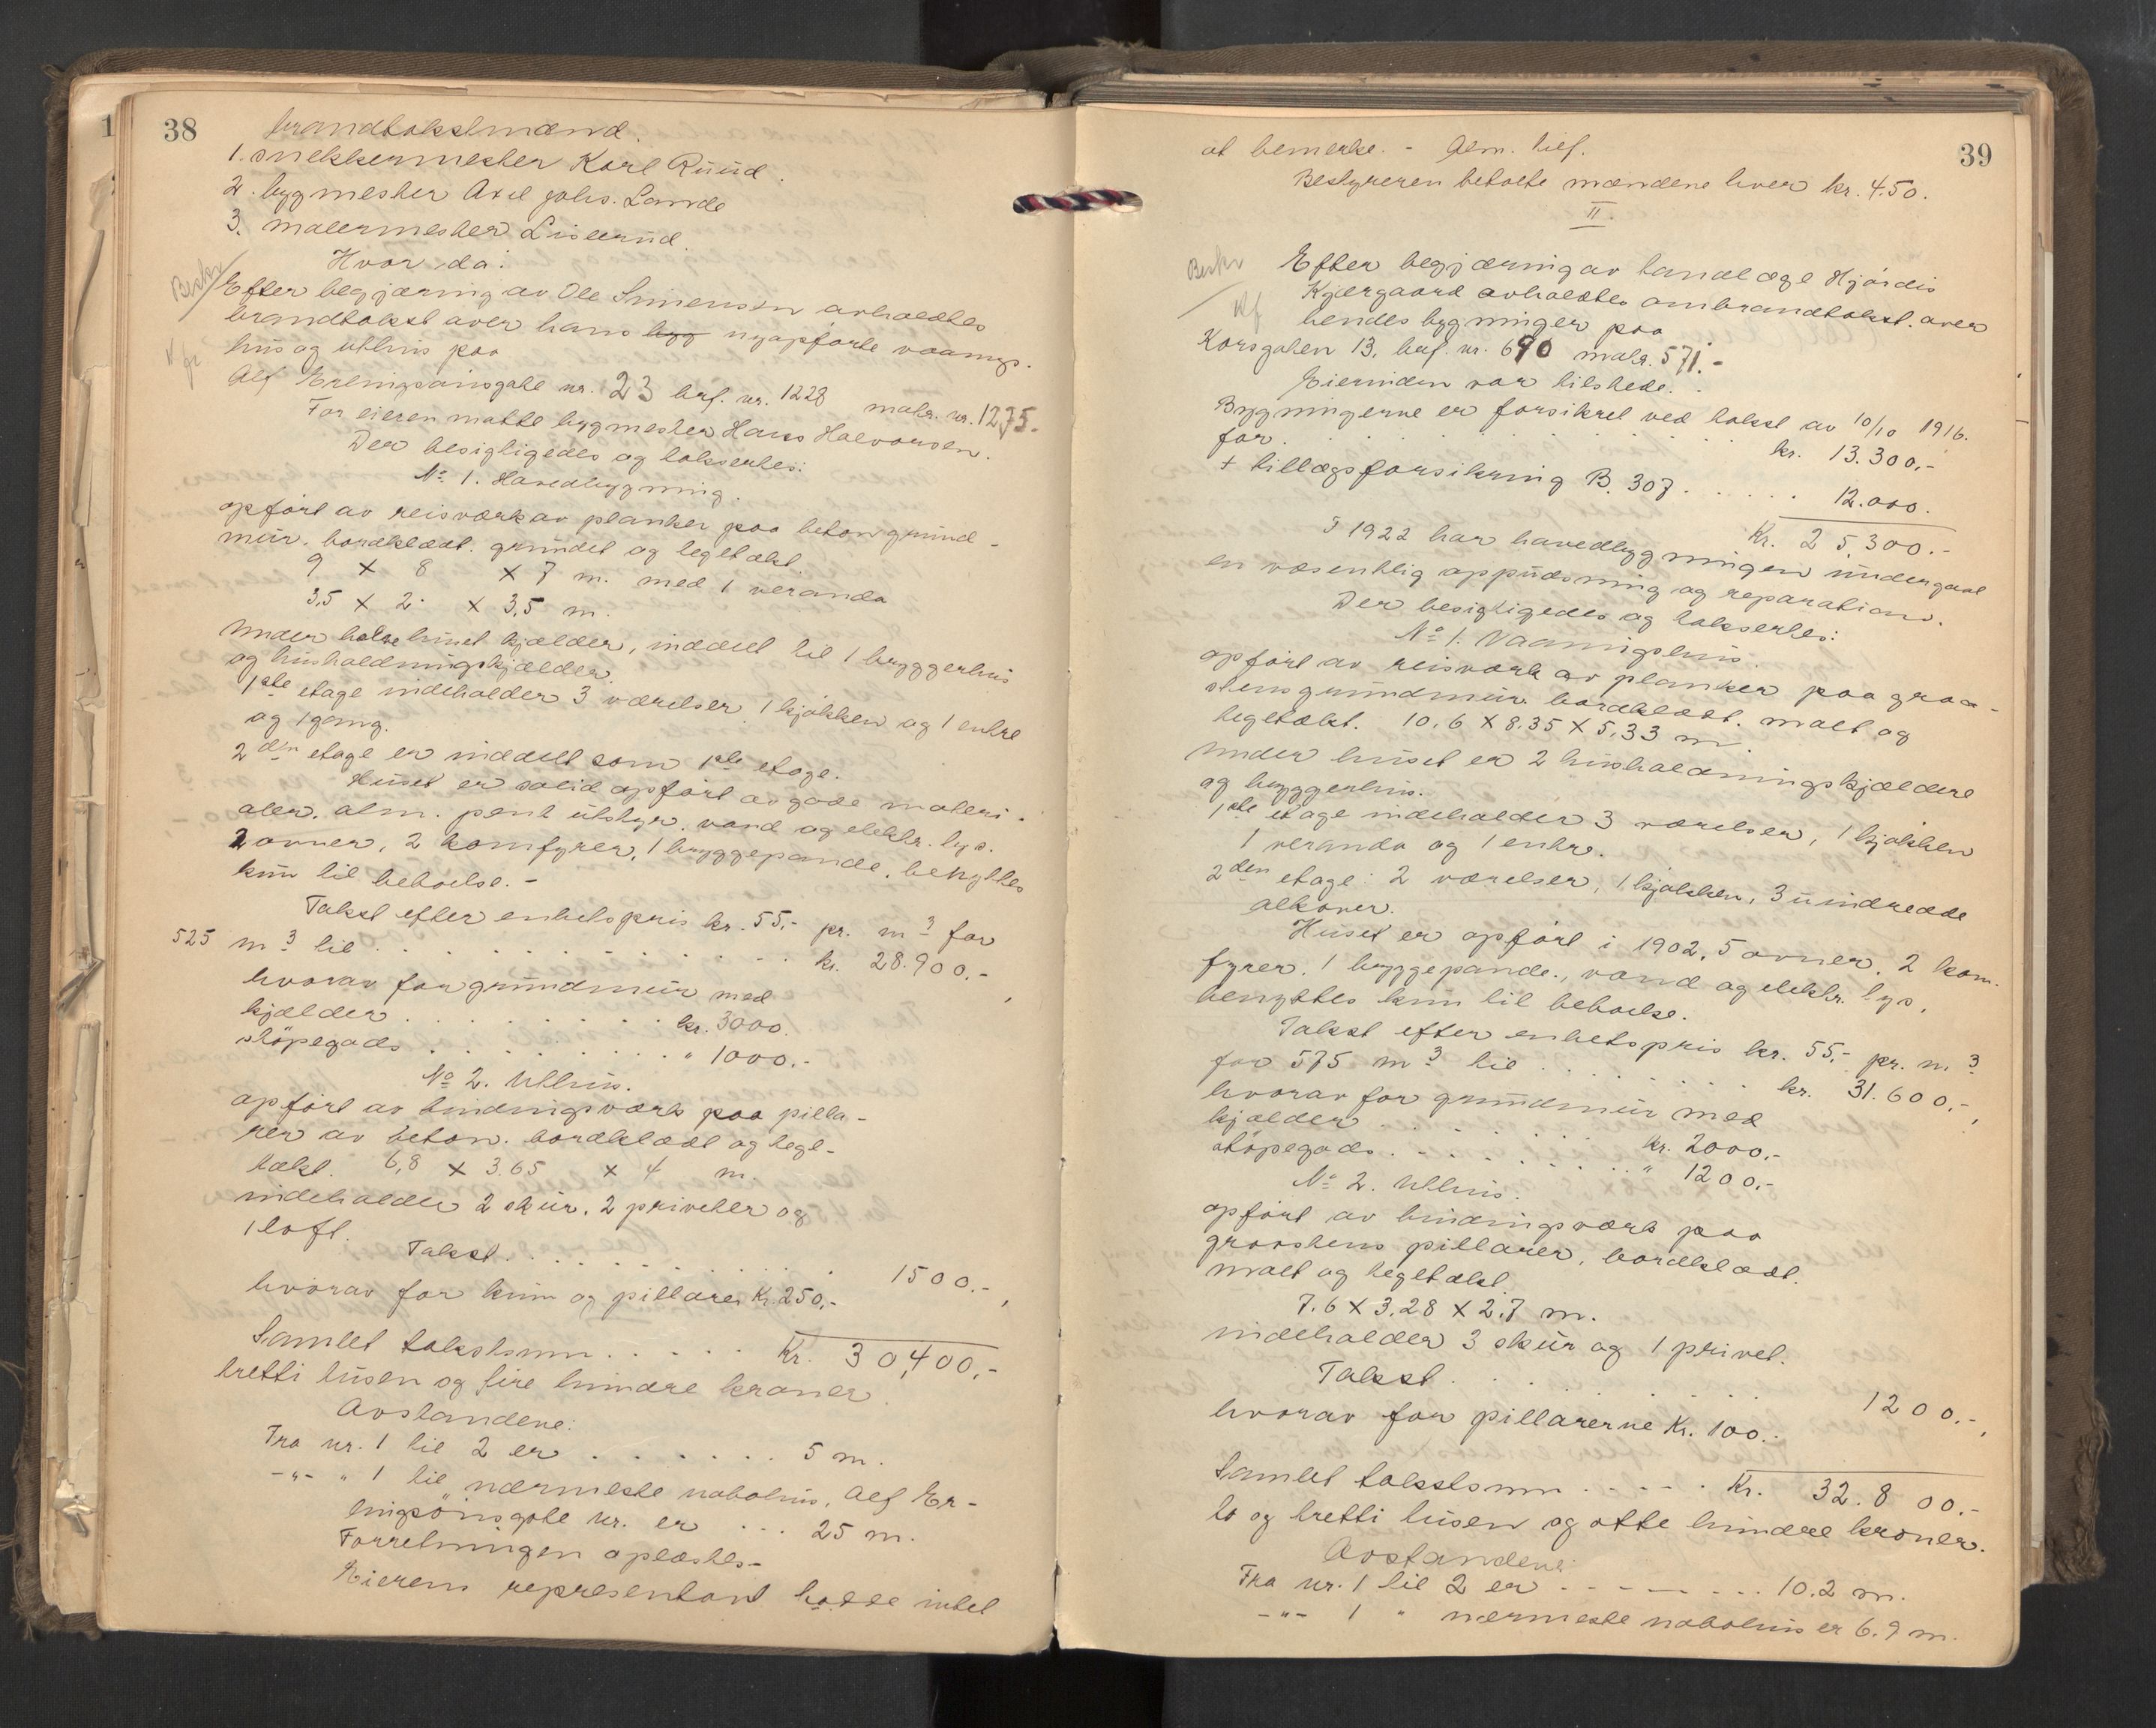 38
brandtakstmænd.
1. snekkermester Karl Ruud.
2. bygmester Axel Johs. Lande
3. malermester Liserud.
Hvor da:
Beskr
Efter begjæring av Ole Simensen avholdtes
brandtakst over hans bygg nyopförte vaanings-
hus og uthus paa
Alf Erlingsönsgate nr. 23 brf. nr. 1228 matr. nr. 1275.-
For eieren mötte bygmester Hans Halvorsen.
Der besigtigedes og takserte:
No 1. Hovedbygning.
opfört av reisverk av planker paa betongrund-
mur. bordklædt. grundet og teglta­kt.
9 x 8 x 7 m. med 1 veranda
3,5 x 2. x 3,5 m.
Under hele huset kjælder, inddelt til 1 bryggerhus
og husholdningskjælder.
1ste etage indeholder 3 værelser 1 kjökken og 1 entre
og 1 gang.
2den etage er inddelt som 1ste etage.
Huset er solid opfört av gode materi-
aler, alm. pent utstyr. vand og elektr. lys.
2 ovner, 2 komfyrer, 1 bryggepande. benyttes
kun til beboelse.-
Takst efter enhetspris kr. 55,- pr. m3 for
525 m3 til . . . . . . kr. 28.900,-,
hvorav for grundmur med
kjælder . . . . . . kr. 3000.
støpegods . . . . . . " 1000.-
No 2. Uthus.
opfört av bindingsverk paa pilla-
rer av beton. bordklædt og tegl-
tækt. 6,8 x 3.65 x 4 m.
indeholder 2 skur, 2 priveter og
1 loft.
Takst . . . . . . 1500.-,
hvorav for kum og pillarer Kr. 250,-
Samlet takstsum . . . . . Kr. 30,400,-
tretti tusen og fire hundre kroner.
Avstandene:
Fra nr. 1 til 2 er . . . . . . 5 m.
-"- " 1 til nærmeste nabohus, Alf Er-
lingsönsgate nr. er . . . 25 m.
Forretningen oplæstes-
Eierens representant hadde intet
39
at bemerke. - Alm. tief.
Bestyreren betalte mændene hver kr. 4.50.
II.
Beskr
Efter begjæring av tandlæge Hjördis
Kjergaard avholdtes ombrandtakst. over
hendes bygninger paa
Korsgaten 13, brf. nr. 690 matr. 571.-
Eierinden var tilstede.
Bygningerne er forsikret ved takst av 10/10 1916.
for . . . . . . kr. 13.300,-
+ tillægsforsikring B. 307 . . . . . . 12.000.
Kr. 25,300.-
I 1922 har hovedbygningen undergaat
en væsentlig oppudsning og reparation.
Der besigtigedes og takserte:
No 1. Vaaningshus.
opfört av reisverk av planker paa graa-
stensgrundmur. bordklædt. malt og
tegltækt. 10.6 x 8.35 x 5,33 m.
Under huset er 2 husholdningskjældere
og bryggerhus.
1ste etage indeholder 3 værelser, 1 kjökken
1 veranda og 1 entre.
2den etage: 2 værelser, 1 kjökken, 3 uindredde
alkover.
Huset er opfört i 1902, 5 ovner, 2 kom-
fyrer, 1 bryggepande, vand og elektr. lys,
benyttes kun til beboelse.
Takst efter enhetspris kr. 55,- pr. m3
for 575 m3 til . . . . . . kr. 31.600,-,
hvorav for grundmur med
kjælder . . . . . . kr. 2000,-
støpegods . . . . . . " 1200,-
No 2. Uthus.
opfört av bindingsverk paa
graastens pillarer, bordklædt.
malt og tegltækt.
7.6 x 3,28 x 2.7 m.
indeholder 3 skur og 1 privet.
Takst . . . . . . 1200.-,
hvorav for pillarerne Kr. 100.-
Samlet takstsum . . . . . Kr. 32.800.-
to og tretti tusen og otte hundre kroner.
Avstandene:
Fra nr. 1 til 2 er . . . . . . 10.2 m.
-"- 1 " nærmeste nabohus er 6.9 m.